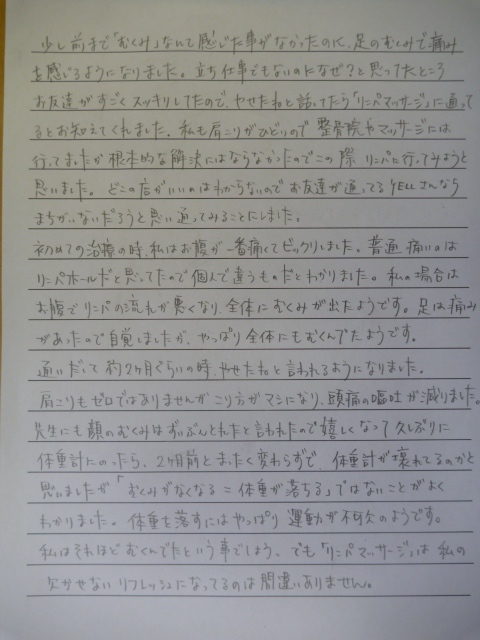 少し前まで「むくみ」なんて感じた事がなかったのに、足のむくみで痛み
を感じるようになりました。立ち仕事でもないのになぜ？と思ってたところ
お友達がすごくスッキリしてたので、やせたねと話してたら「リンパマッサージ」に通って
るとお知えてくれました。私も肩こりがひどいので整骨院やマッサージには
行ってましたが根本的な解決にはならなかったのでこの際リンパに行ってみようと
思いました。どこの店がいいのはわからないのでお友達が通ってるYELLさんなら
まちがいないだろうと思い通ってみることにしました。
初めての治療の時、私はお腹が一番痛くてビックリしました。普通痛いのは
リンパホールだと思ってたので個人で違うものだとわかりました。私の場合は
お腹でリンパの流れが悪くなり、全体にむくみが出たようです。足は痛み
があったので自覚しましたが、やっぱり全体にもむくんでたようです。
通いだして約2ヶ月ぐらいの時、やせたねと言われるようになりました。
肩こりもゼロではありませんがこり方がマシになり、頭痛の嘔吐が減りました。
先生にも顔のむくみはずいぶんとれたと言われたので嬉しくなって久しぶりに
体重計にのったら、2ヶ月前とまったく変わらずで、体重計が壊れてるのかと
思いましたが「むくみがなくなる＝体重が落ちる」ではないことがよく
わかりました。体重も落すにはやっぱり運動が不可欠のようです。
私はそれほどむくんでたという事でしょう。でも「リンパマッサージ」は私の
欠かせないリフレッシュになってるのは間違いありません。